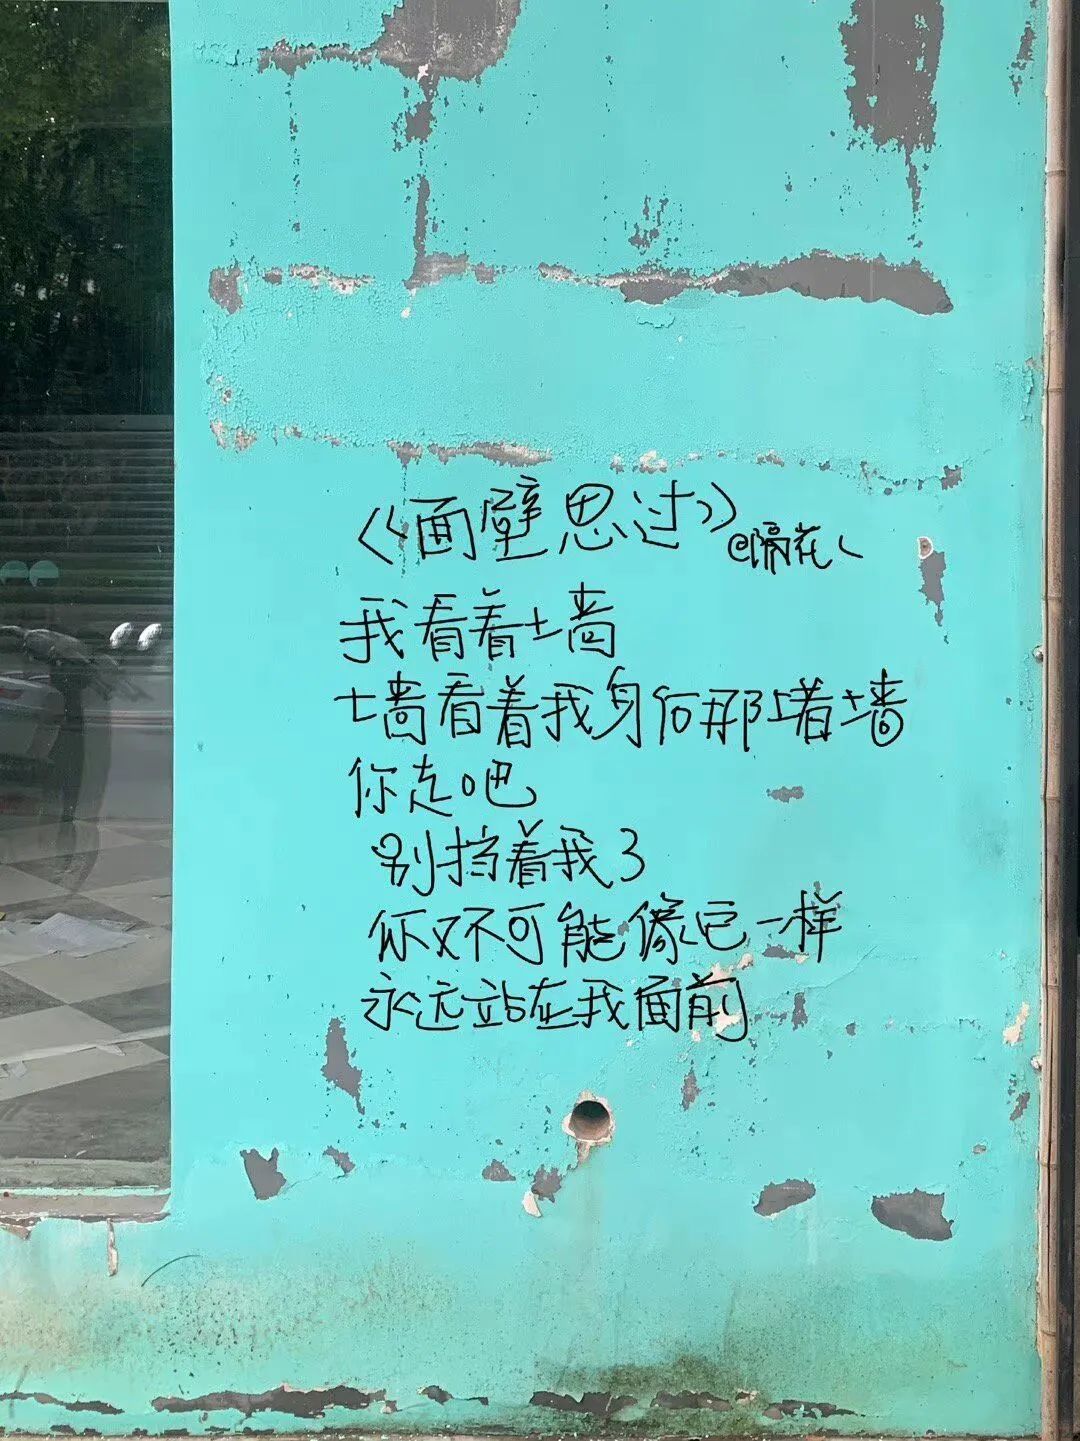 《面壁思过》@隔花人
我看着墙
墙看着我身何那堵着墙
你走吧
别挡着我了
你又不可能像它一样
永远站在我面前